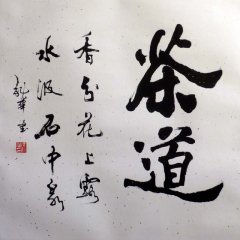 茶道
香分花上露
水汲石中泉